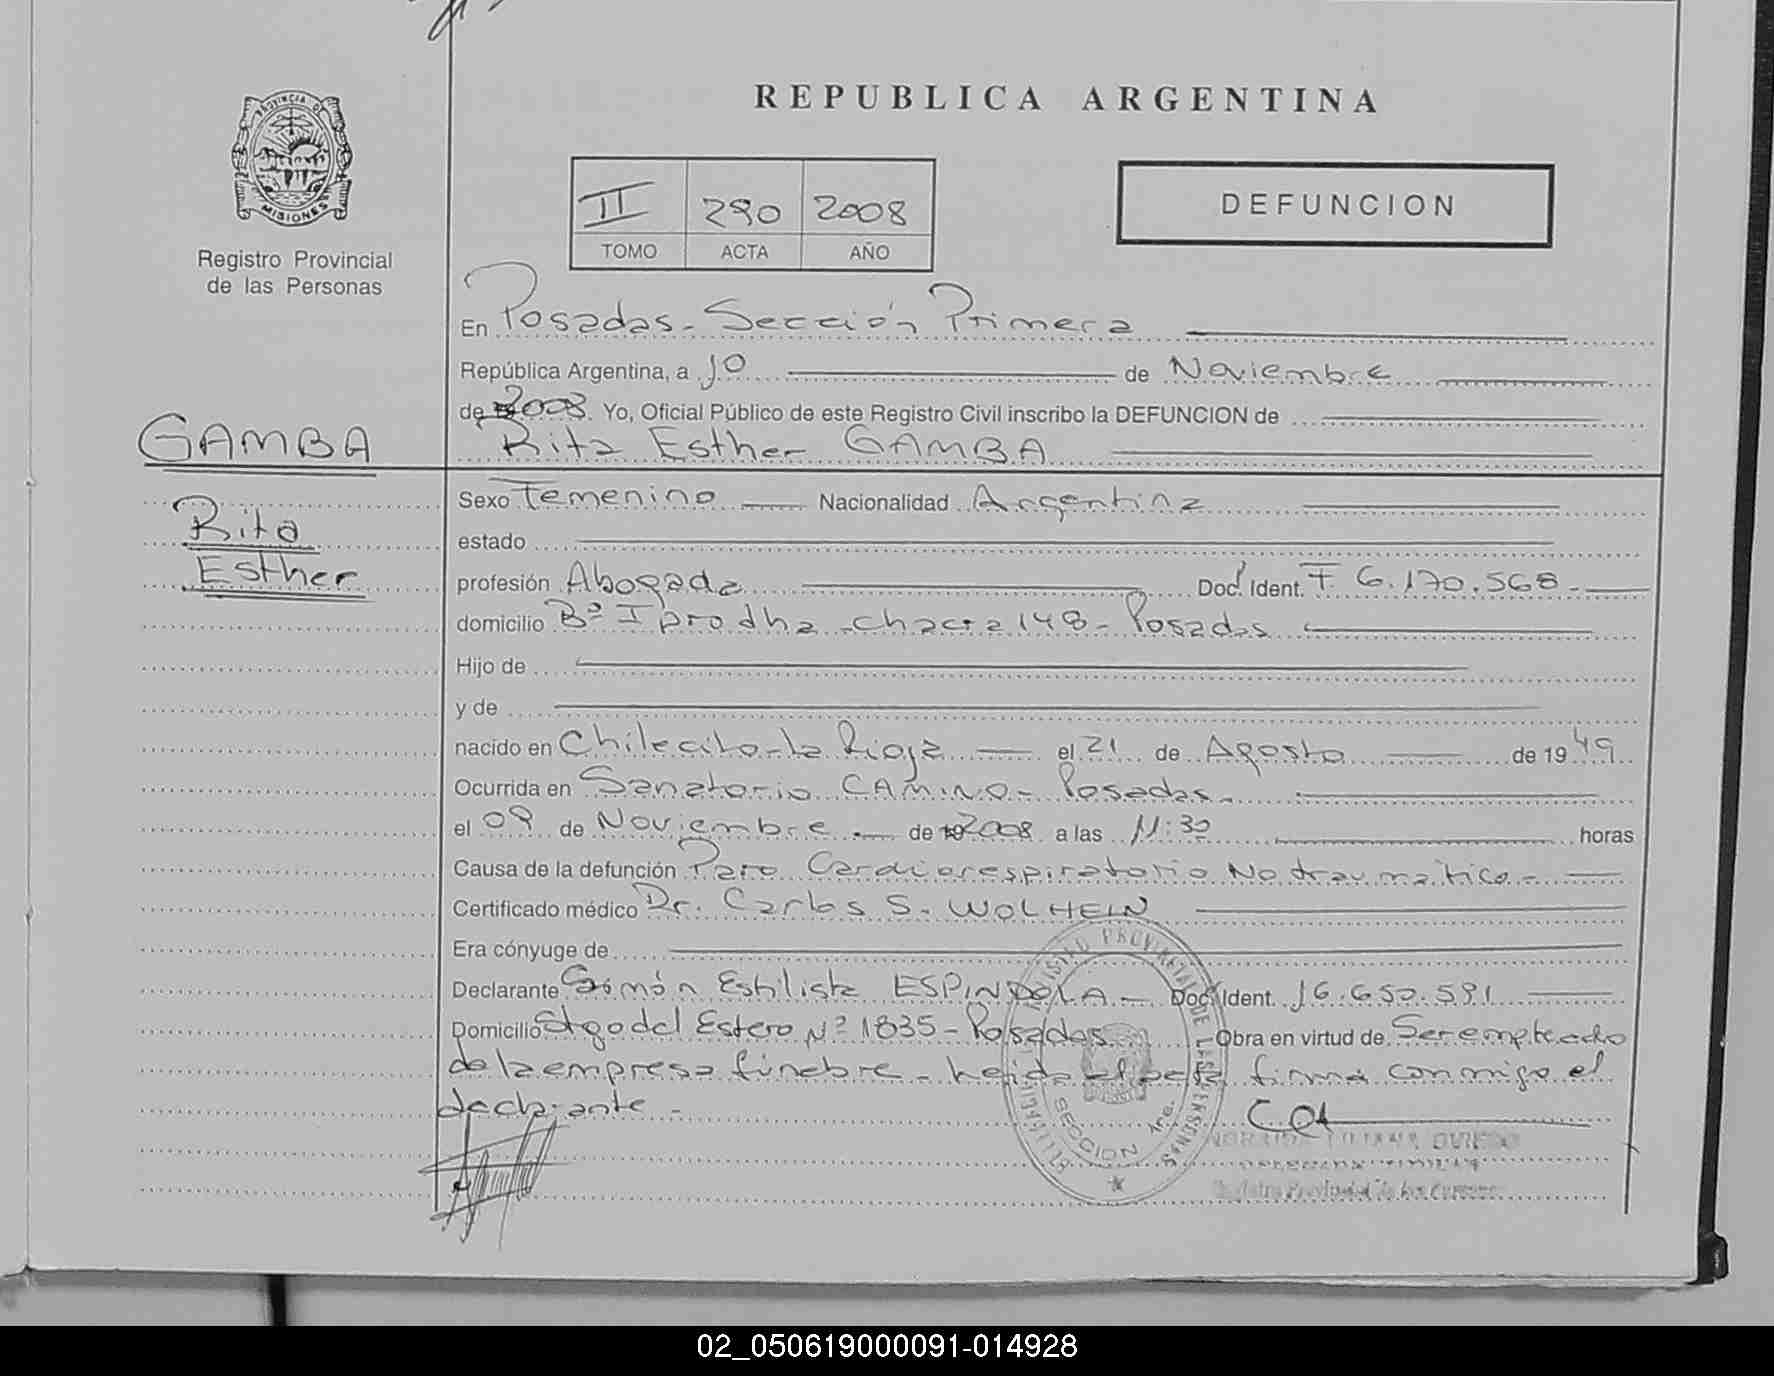 REPUBLICA ARGENTINA
PROVINCIA DE
MISIONES
Registro Provincial
de las Personas
II 290 2008
TOMO ACTA AÑO
DEFUNCION
En Posadas - Sección Primera
República Argentina, a 10 de Noviembre
de 2008. Yo, Oficial Público de este Registro Civil inscribo la DEFUNCION de
GAMBA
Rita Esther GAMBA
Rita
Esther
Sexo Femenino Nacionalidad Argentina
estado
profesión Abogada Doc. Ident. F 6.170.568-
domicilio Bº Iprodha - chacra 148 - Posadas
Hijo de
y de
nacido en Chilecito - la Rioja el 21 de Agosto de 1949
Ocurrida en Sanatorio CAMINO - Posadas -
el 09 de Noviembre de 2008 a las 11:30 horas
Causa de la defunción Paro Cardiorespiratorio No traumatico -
Certificado médico Dr. Carlos S. WOLHEIN
Era cónyuge de
Declarante Simón Estilista ESPINDOLA - Doc. Ident. 16.650.591
Domicilio Stgo del Estero Nº 1835 - Posadas Obra en virtud de Ser empleado
de la empresa fúnebre - leida el acta firma conmigo el
declarante -
REGISTRO PROVINCIAL DE LAS PERSONAS
SECCION 1ra.
Registro Provincial de las Personas
02_050619000091-014928